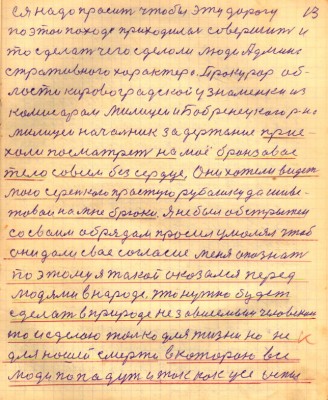 13
ся надо просит чтобы эту дорогу
по этом походе приходилос совершит и
то сделат чего сделоли люди Админи
стративного характера. Прокурор об-
ласти кировоградской у знаменки из
комисаром Милиции и Бобренецкого р-на
милиции началник задержание прие-
хали посматрет на моё бронзавое
тело совсем без сердце, Они хотели видет
мого серенкого простую рубашку да шиве-
товаи на мне брюки. Я не был обстрижен
со своим обрядам просил умолял чтоб
они дали свае согласие меня опознат
по этому я такой оказался перед
людями в народе. што нужно будет
сделат в природе независемый человеком
то и сделаю толко для жизни но не
для нашей смерти в котораю все
люди попадут и так как усе они